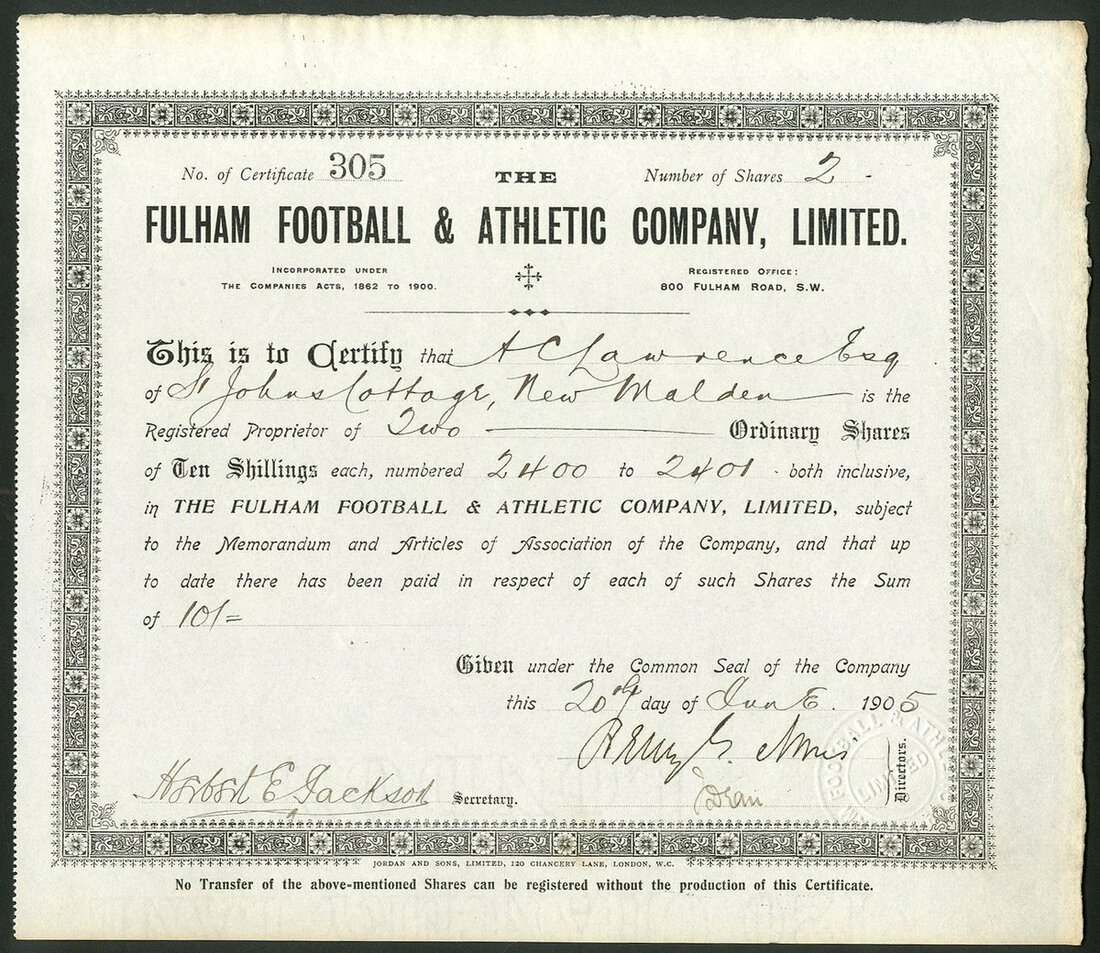 No. of Certificate 305 THE Number of Shares 2 -
FULHAM FOOTBALL & ATHLETIC COMPANY, LIMITED.
INCORPORATED UNDER
THE COMPANIES ACTS, 1862 TO 1900.
REGISTERED OFFICE:
800 FULHAM ROAD, S.W.
This is to Certify that A C Lawrence Esq
of St Johns Cottage, New Malden is the
Registered Proprietor of Two Ordinary Shares
of Ten Shillings each, numbered 2400 to 2401 - both inclusive,
in THE FULHAM FOOTBALL & ATHLETIC COMPANY, LIMITED, subject
to the Memorandum and Articles of Association of the Company, and that up
to date there has been paid in respect of each of such Shares the Sum
of 10/=
Given under the Common Seal of the Company
this 20th day of June 1905
Henry G. Norris
Herbert E Jackson Secretary.
Dean
Directors.
FOOTBALL & ATHLE
LIMITED
JORDAN AND SONS, LIMITED, 120 CHANCERY LANE, LONDON, W.C.
No Transfer of the above-mentioned Shares can be registered without the production of this Certificate.